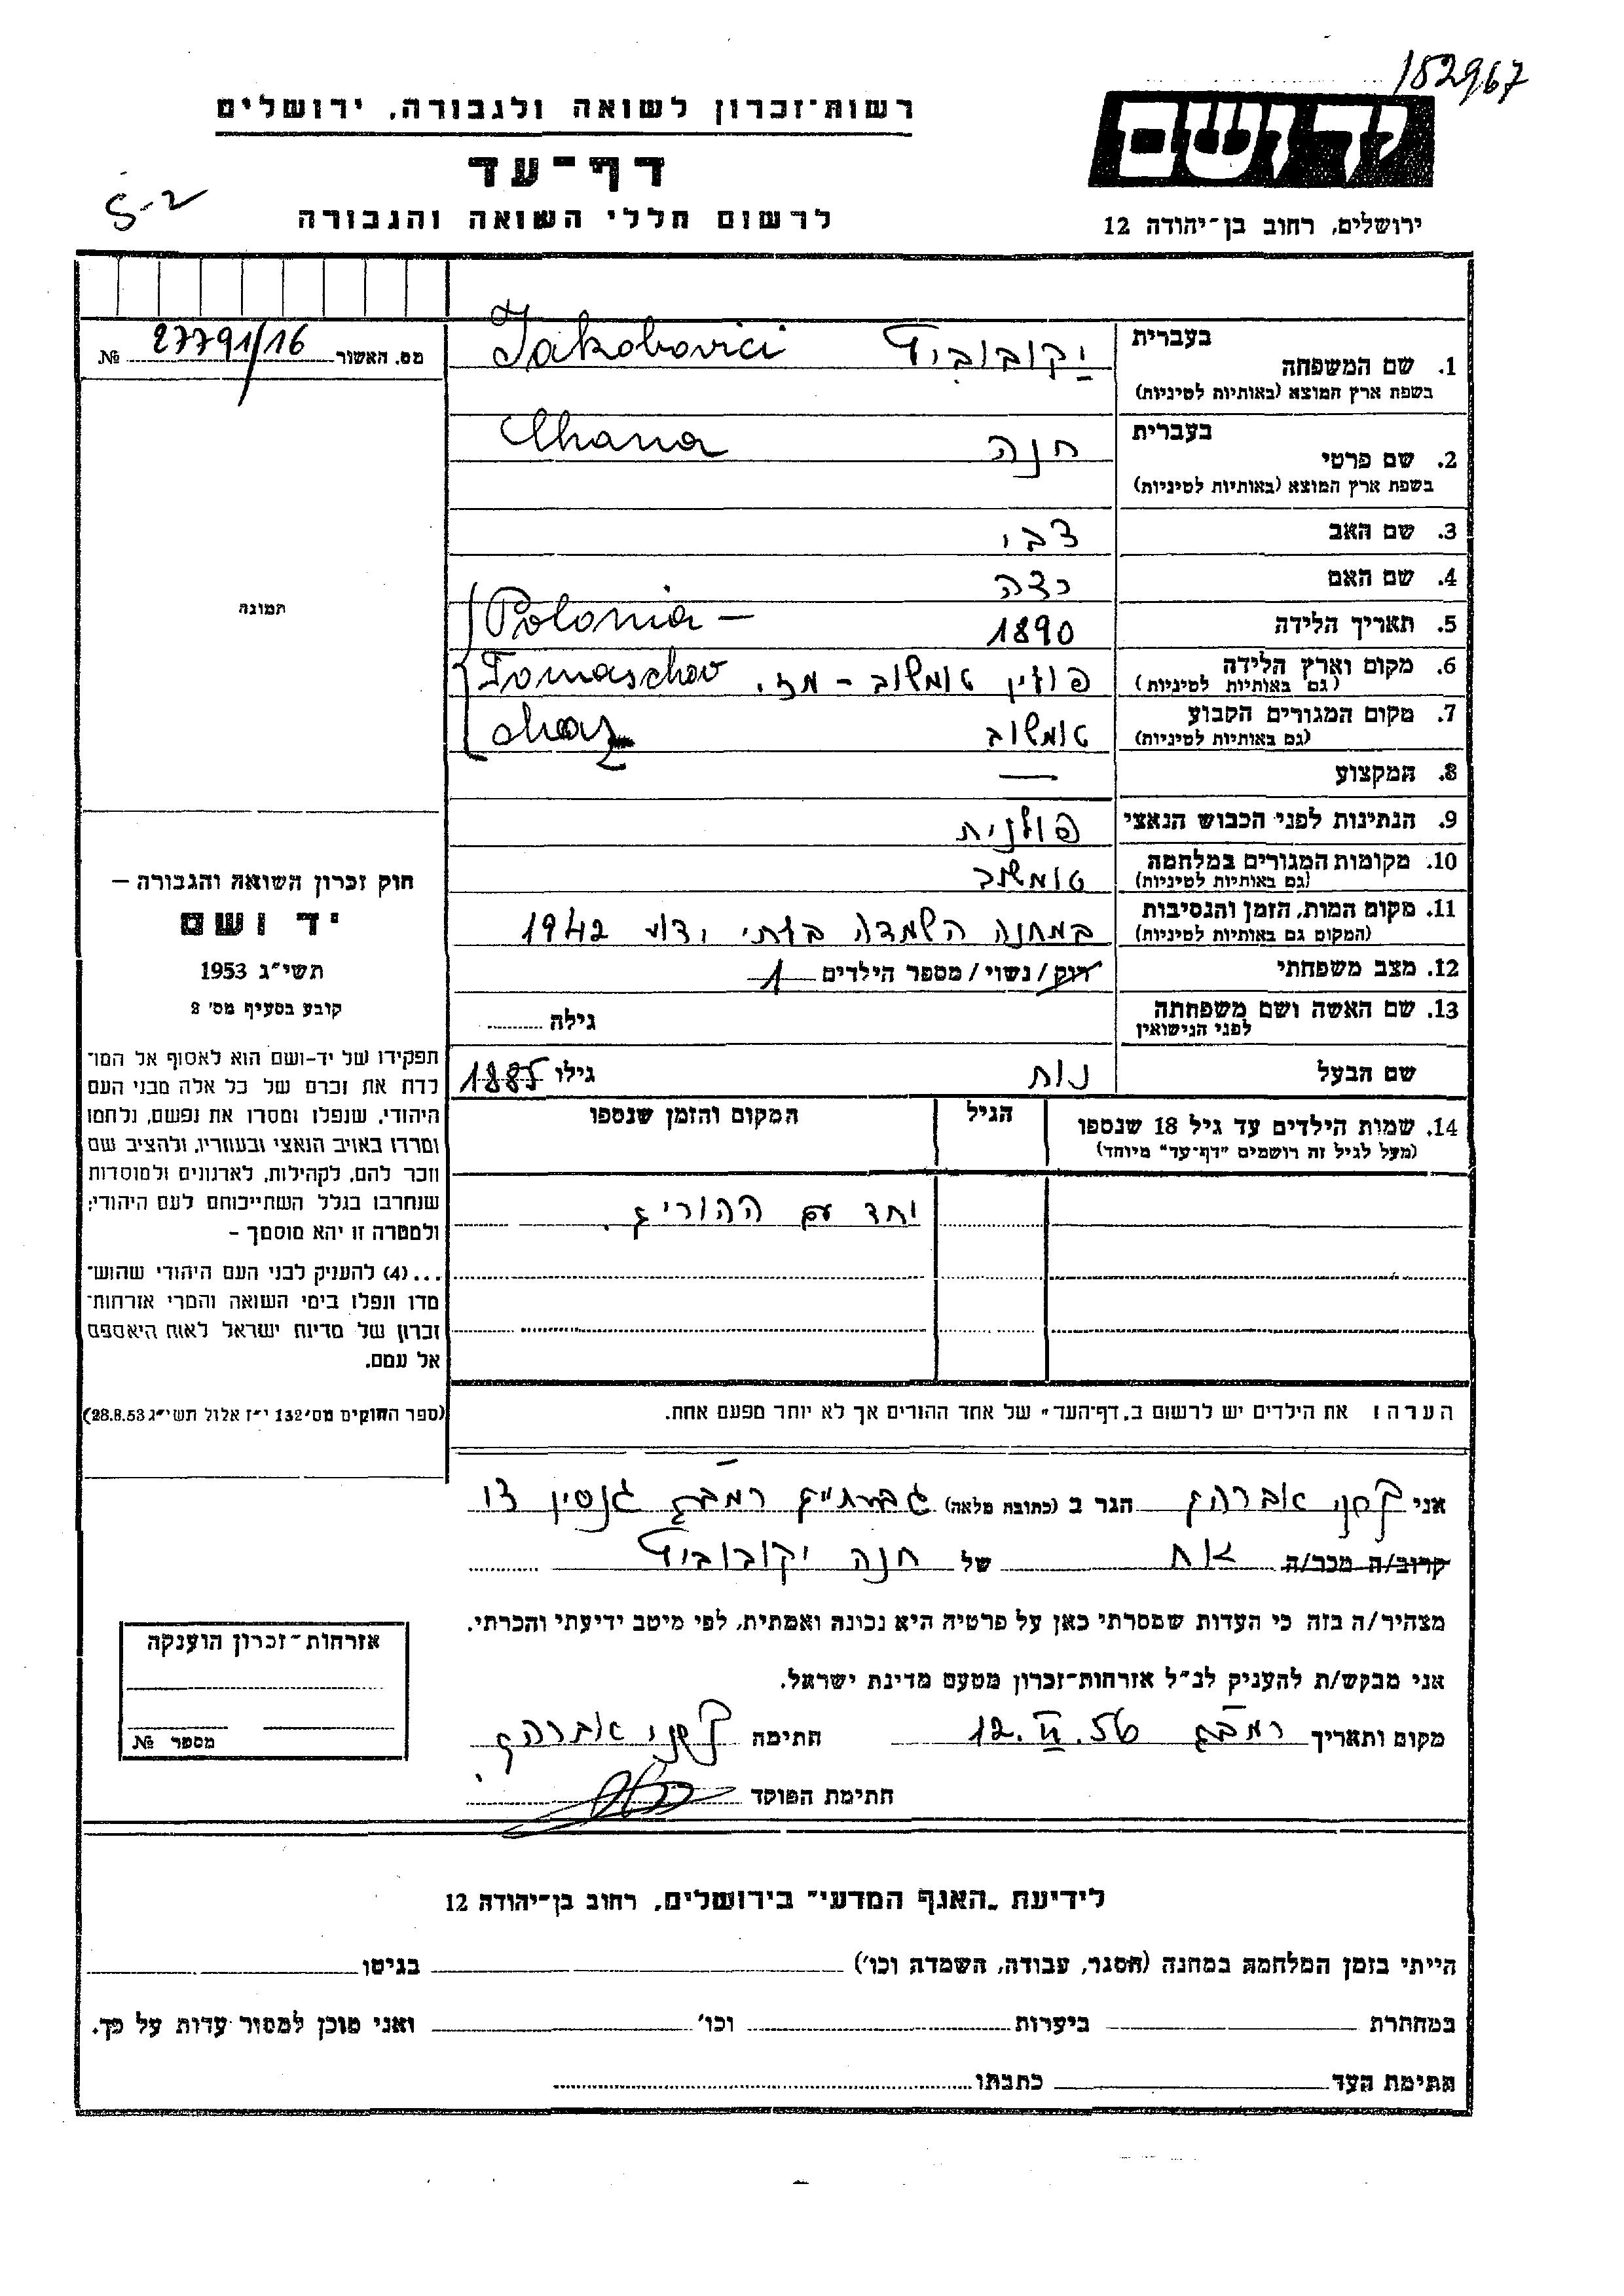 152967
רשות־זכרון לשואה ולגבורה. ירושלים
יד ושם
דף־עד
5-2
לרשום חללי השואה והגבורה
ירושלים, רחוב בן־יהודה 12
מס. האשור 27791/16 №
בעברית יקובוביץ Jakobovici
1. שם המשפחה
בשפת ארץ המוצא (באותיות לטיניות)
בעברית חנה Chana
2. שם פרטי
בשפת ארץ המוצא (באותיות לטיניות)
3. שם האב צבי
4. שם האם
5. תאריך הלידה 1890 Polonia –
6. מקום וארץ הלידה פולין טומשוב – מז. Tomaschov
(גם באותיות לטיניות)
7. מקום המגורים הקבוע טומשוב
(גם באותיות לטיניות)
8. המקצוע —
9. הנתינות לפני הכבוש הנאצי פולנית
10. מקומות המגורים במלחמה טומשוב
(גם באותיות לטיניות)
11. מקום המות, הזמן והנסיבות במחנה השמדה בלתי ידוע 1942
(המקום גם באותיות לטיניות)
12. מצב משפחתי רוק/נשוי/מספר הילדים 1
13. שם האשה ושם משפחתה גילה
לפני הנישואין
שם הבעל נוח גילו 1885
14. שמות הילדים עד גיל 18 שנספו הגיל המקום והזמן שנספו
(מעל לגיל זה רושמים "דף־עד" מיוחד)
יחד עם ההורים.
הערה: את הילדים יש לרשום ב„דף־העד" של אחד ההורים אך לא יותר מפעם אחת.
תמונה
חוק זכרון השואה והגבורה –
יד ושם
תשי"ג 1953
קובע בסעיף מס' 2
תפקידו של יד-ושם הוא לאסוף אל המו־
לדת את זכרם של כל אלה מבני העם
היהודי, שנפלו ומסרו את נפשם, נלחמו
ומרדו באויב הנאצי ובעוזריו, ולהציב שם
וזכר להם, לקהילות, לארגונים ולמוסדות
שנחרבו בגלל השתייכותם לעם היהודי;
ולמטרה זו יהא מוסמך –
...(4) להעניק לבני העם היהודי שהוש־
מדו ונפלו בימי השואה והמרי אזרחות־
זכרון של מדינת ישראל לאות היאספם
אל עמם.
(ספר החוקים מס' 132 י"ז אלול תשי"ג 28.8.53)
אני אברהם הגר ב (כתובת מלאה)
קרוב/ה מכר/ה אח של חנה יקובוביץ
מצהיר/ה בזה כי העדות שמסרתי כאן על פרטיה היא נכונה ואמתית, לפי מיטב ידיעתי והכרתי.
אני מבקש/ת להעניק לנ"ל אזרחות־זכרון מטעם מדינת ישראל.
מקום ותאריך 12. VI. 56 חתימה אברהם
חתימת הפוקד
אזרחות־זכרון הוענקה
מספר №
לידיעת „האגף המדעי" בירושלים, רחוב בן־יהודה 12
הייתי בזמן המלחמה במחנה (הסגר, עבודה, השמדה וכו') בגיטו
במחתרת ביערות וכו' ואני מוכן למסור עדות על כך.
חתימת העד כתבתו